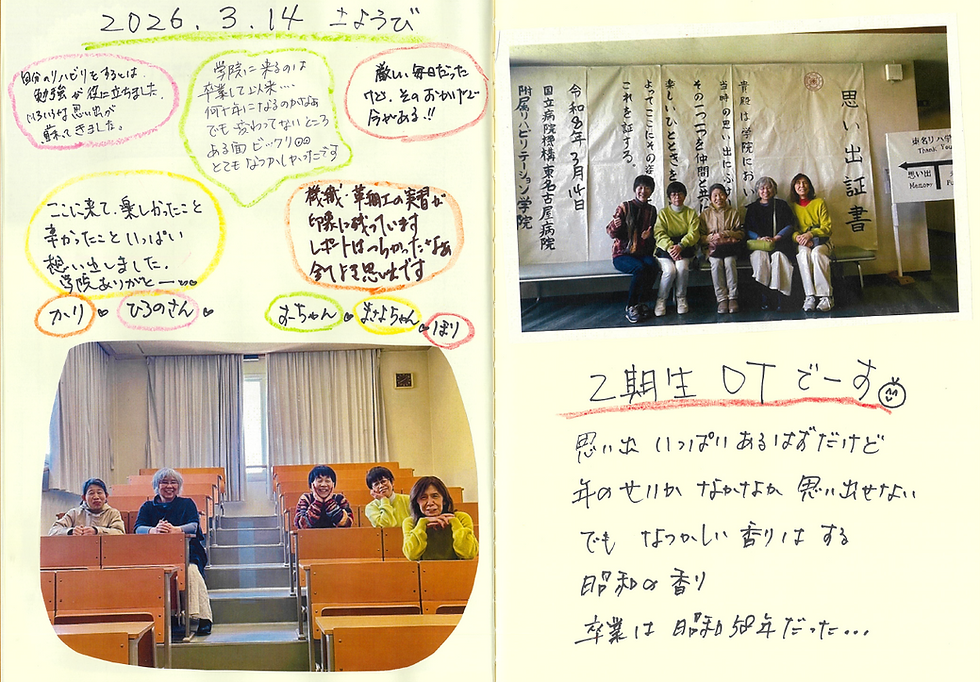 2026.3.14 土ようび
自分のリハビリをするとは
勉強が役に立ちました。
いろいろな思い出が
蘇ってきました。
学院に来るのは
卒業して以来…
何十年になるのかなぁ
でも変わってないところ
ある面ビックリ
とてもなつかしかったです
厳しい毎日だった
けど、そのおかげで
今がある!!
ここに来て、楽しかったこと
辛かったこといっぱい
想い出しました。
学院ありがとー
機織・革細工の実習が
印象に残っています
レポートはつらかったなぁ
全てよき思い出です
かり
ひろのさん
まーちゃん
まさよちゃん
ぽり
思い出証書
貴殿は学院におい
当時の思い出にふけ
その一つ一つを仲間と共
楽しいひとときを
よってここにその姿
これを証する。
令和8年3月14日
国立病院機構東名古屋病院
附属リハビリテーション学院
東名リハ学
Thank You
思い出
Memory
2期生 OTでーす
思い出 いっぱいあるはずだけど
年のせいか なかなか 思い出せない
でも なつかしい 香りは する
昭和の香り
卒業は 昭和58年だった…